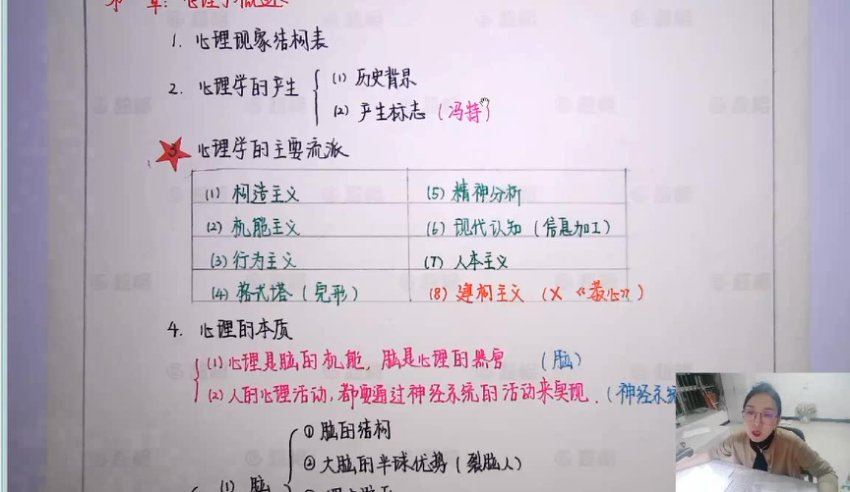 第一章：心理学概述
1. 心理现象结构表
2. 心理学的产生
(1) 历史背景
(2) 产生标志（冯特）
3 心理学的主要流派
(1) 构造主义
(5) 精神分析
(2) 机能主义
(6) 现代认知（信息加工）
(3) 行为主义
(7) 人本主义
(4) 格式塔（完形）
(8) 建构主义（X《教心》）
4. 心理的本质
(1) 心理是脑的机能，脑是心理的器官 （脑）
(2) 人的心理活动，都要通过神经系统的活动来实现.（神经系统
① 脑的结构
② 大脑的半球优势（裂脑人）
(1) 脑